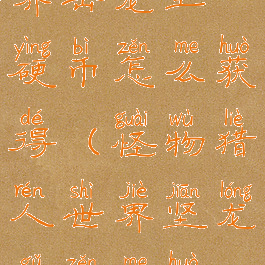 yìng bì zěn me huò
硬币怎么获
dé guài wù liè
得（怪物猎
rén shì jiè jiān lóng
人世界坚龙